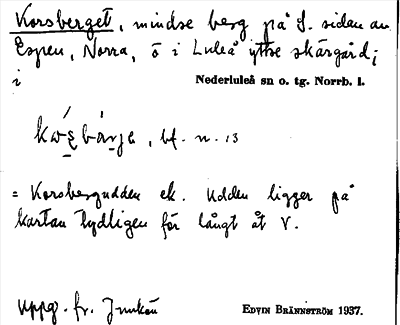 Korsberget, mindre berg på S. sidan av
Espen, Norra, ö i Luleå yttre skärgård;
i Nederluleå sn o. tg. Norrb. l.
bf. n. 13
= Korsbergudden ek. Udden ligger på
kartan tydligen för långt åt V.
Uppg. fr. Junkön EDVIN BRÄNNSTRÖM 1937.